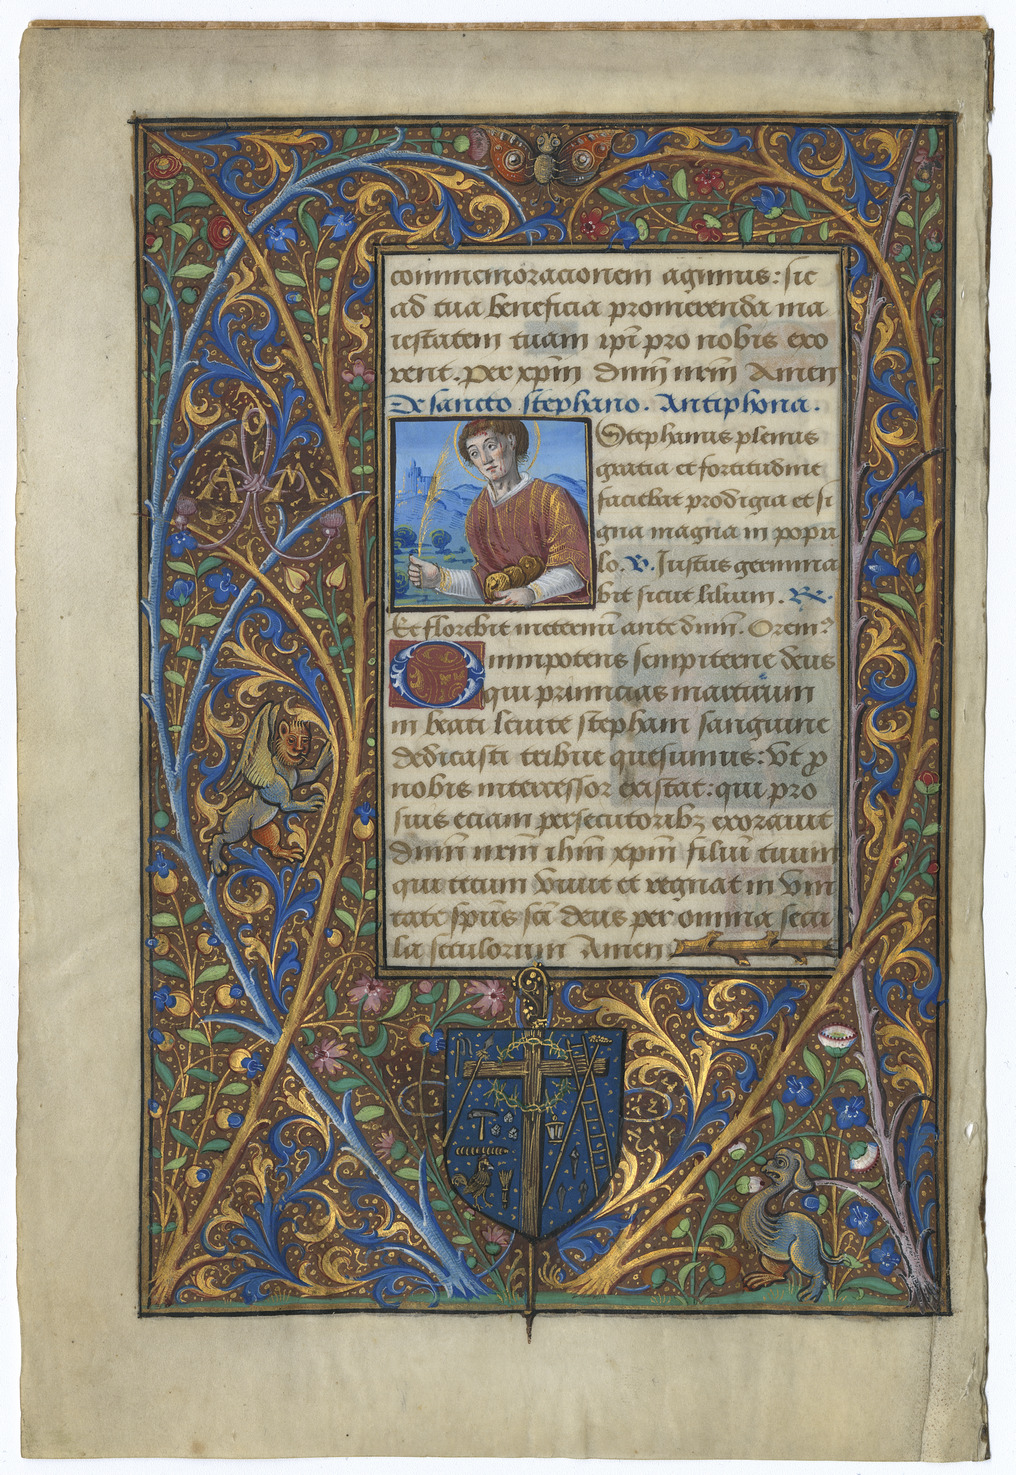 commemoracionem agimus: sic
ad tua beneficia promerenda ma
iestatem tuam ipi pro nobis exo
rent. per xpm dnm nrm Amen
De sancto stephano. Antiphona.
Stephanus plenus
gratia et fortitudine
faciebat prodigia et si
gna magna in popu
lo. V. Iustus germina
bit sicut lilium. R.
Et florebit ineternu ante dnm. Orem9
Omnipotens sempiterne deus
qui primicias martirum
in beati levite stephani sanguine
dedicasti tribue quesumus: Vt p
nobis intercessor existat: qui pro
suis eciam persecutoribz exoravit
dnm nrm ihm xpm filiu tuum
qui tecum vivit et regnat in vni
tate spus sci deus per omnia secu
la seculorum Amen
A M